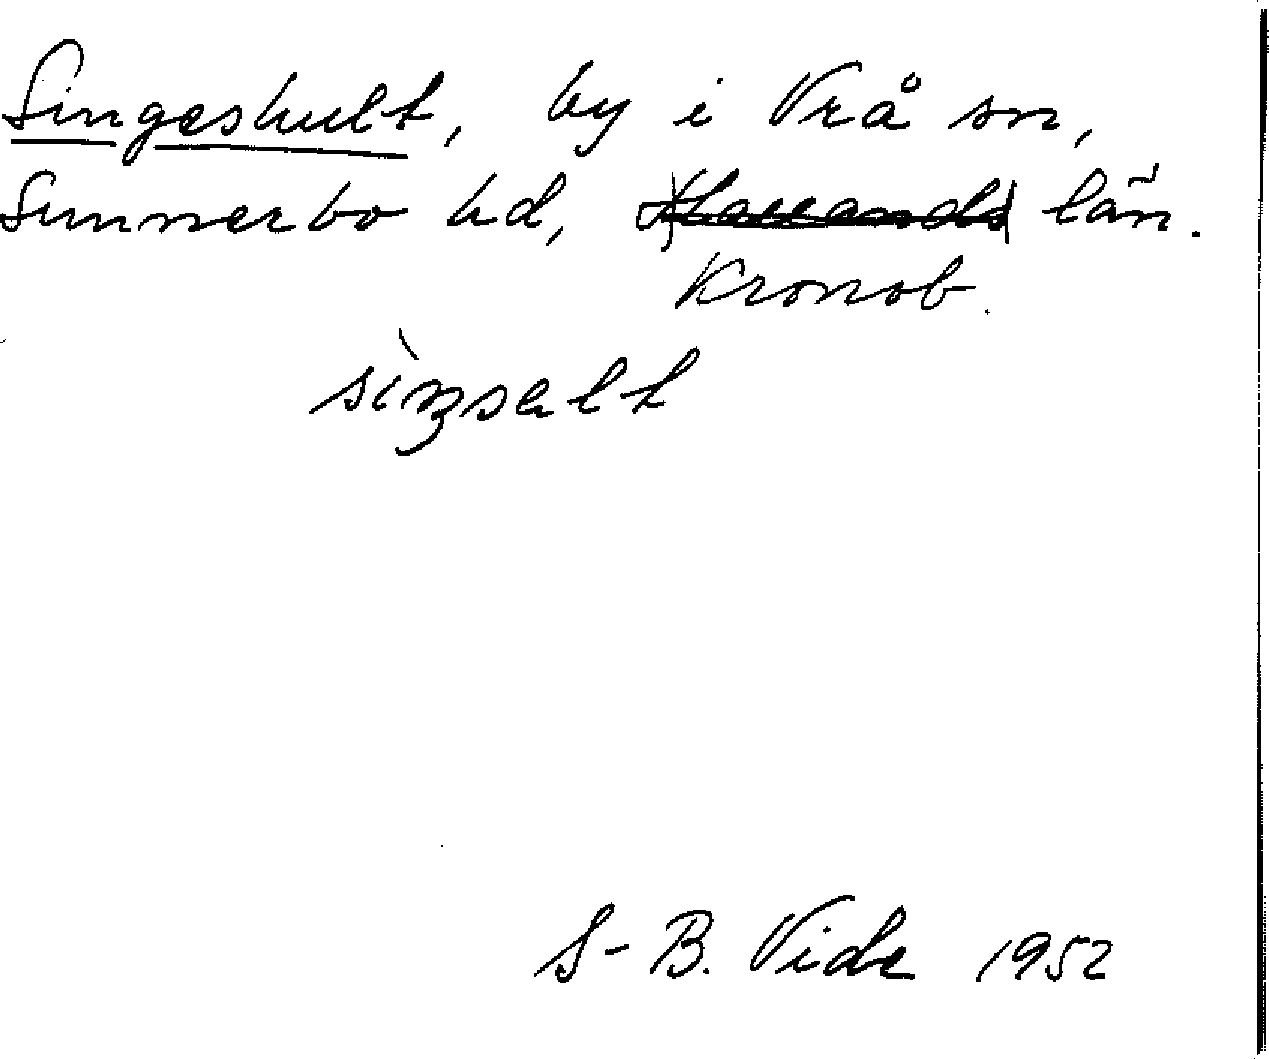 Singeshult, by i Vrå sn,
Sunnerbo hd, Hallands län.
Kronob.
sìŋsəlt
S-B. Vide 1952